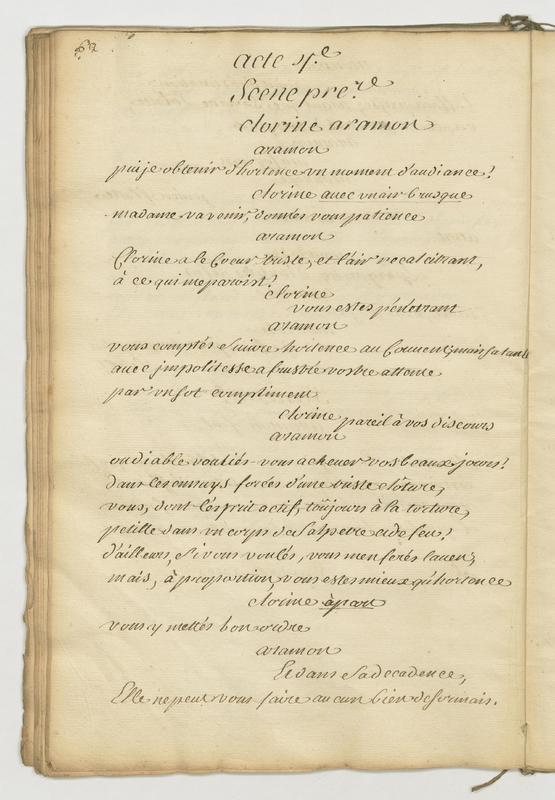 acte 4.e
Scene pre.re
clorine aramon
aramon
puije obtenir d'hortence vn moment d'audiance?
clorine auec vn air brusque
madame va venir, donnés vous patience
aramon
Clorine a le Coeur triste, et l'air recalcitrant,
à ce qui me paroist?
clorine
vous estes pénétrant
aramon
vous comptés suiure hortence au Couuent; mais sa tante
auec jmpolitesse a frustré vostre attente
par vn sot compliment
clorine
pareil à vos discours
aramon
ou diable vouliés-vous acheuer vos beaux jours?
dans les ennuys forcés d'une triste clôture,
vous, dont l'esprit actif, toûjours à la torture,
petille dans vn corps de salpetre et de feu?
d'ailleurs, si vous voulés, vous m'en ferés l'aueu,
mais, à proportion, vous estes mieux qu'hortence
clorine àpart
vous y mettés bon ordre
aramon
Et dans sa decadence,
Elle ne peut vous faire aucun bien desormais.